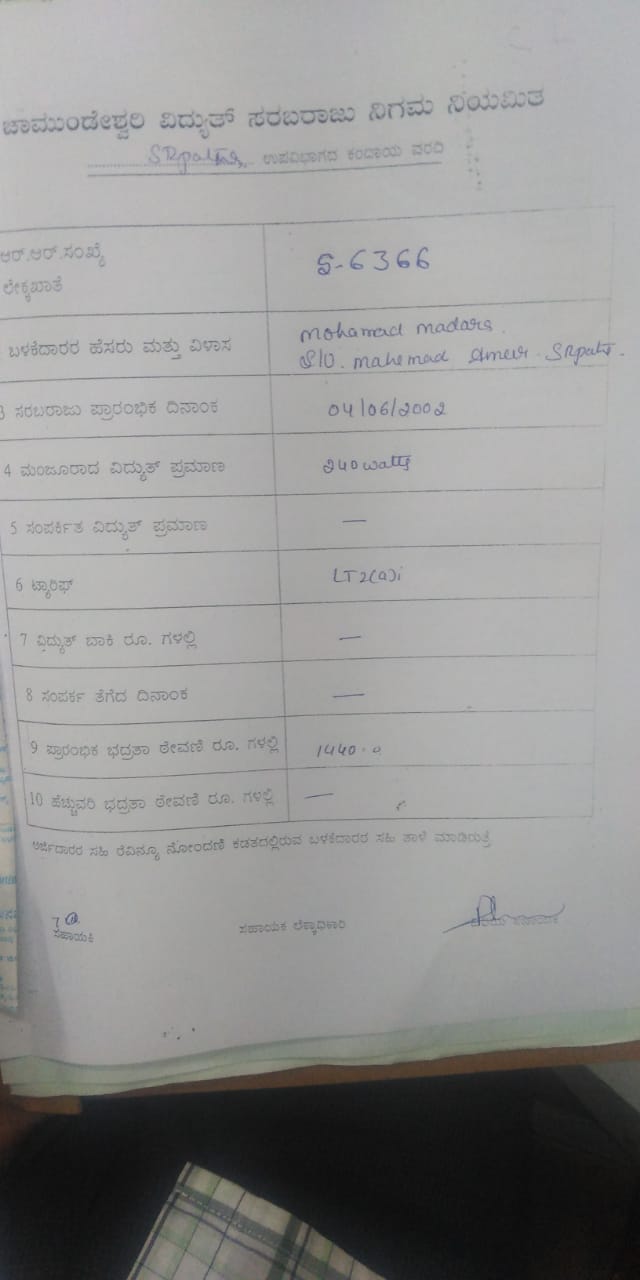 ಚಾಮುಂಡೇಶ್ವರಿ ವಿದ್ಯುತ್ ಸರಬರಾಜು ನಿಗಮ ನಿಯಮಿತ
ಉಪವಿಭಾಗದ ಕಂದಾಯ ವರದಿ
ಆರ್.ಆರ್.ಸಂಖ್ಯೆ S-6366
ಲೆಕ್ಕಖಾತೆ
ಬಳಕೆದಾರರ ಹೆಸರು ಮತ್ತು ವಿಳಾಸ Mohamad madars.
S/O. mahemad Ameer. SRpatn.
3 ಸರಬರಾಜು ಪ್ರಾರಂಭಿಕ ದಿನಾಂಕ 04/06/2002
4 ಮಂಜೂರಾದ ವಿದ್ಯುತ್ ಪ್ರಮಾಣ 240 watts
5 ಸಂಪರ್ಕಿತ ವಿದ್ಯುತ್ ಪ್ರಮಾಣ —
6 ಟ್ಯಾರಿಫ್ LT2(a)i
7 ವಿದ್ಯುತ್ ಬಾಕಿ ರೂ. ಗಳಲ್ಲಿ —
8 ಸಂಪರ್ಕ ತೆಗೆದ ದಿನಾಂಕ —
9 ಪ್ರಾರಂಭಿಕ ಭದ್ರತಾ ಠೇವಣಿ ರೂ. ಗಳಲ್ಲಿ 1440.0
10 ಹೆಚ್ಚುವರಿ ಭದ್ರತಾ ಠೇವಣಿ ರೂ. ಗಳಲ್ಲಿ —
ಅರ್ಜಿದಾರರ ಸಹಿ ರೆವಿನ್ಯೂ ನೋಂದಣಿ ಕಡತದಲ್ಲಿರುವ ಬಳಕೆದಾರರ ಸಹಿ ತಾಳೆ ಮಾಡಿರುತ್ತೆ
ಸಹಾಯಕಿ ಸಹಾಯಕ ಲೆಕ್ಕಾಧಿಕಾರಿ